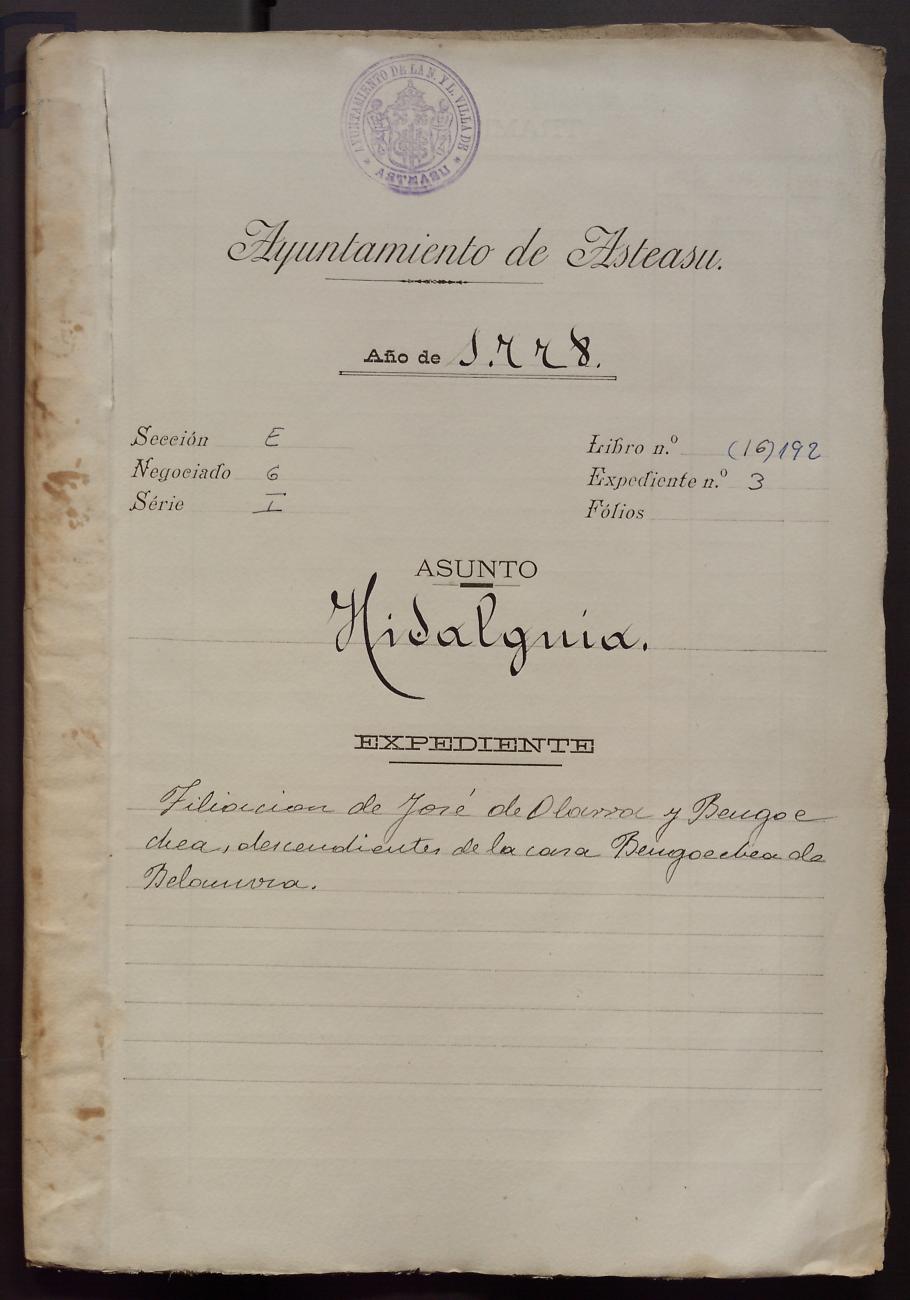 AYUNTAMIENTO DE LA N. Y L. VILLA DE
ASTEASU
Ayuntamiento de Asteasu.
Año de 1.778.
Sección E
Negociado 6
Série I
Libro n.º (16) 192
Expediente n.º 3
Fólios
ASUNTO
Hidalguia.
EXPEDIENTE
Filiacion de José de Olarra y Bengoe
chea, descendientes de la casa Bengoechea de